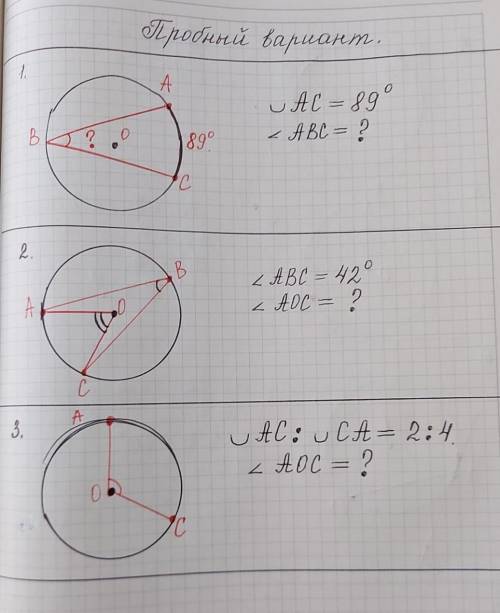 Пробный вариант.
1.
A
B
?
O
89°
C
◡ AC = 89°
∠ ABC = ?
2.
B
A
O
C
∠ ABC = 42°
∠ AOC = ?
3.
A
O
C
◡ AC : ◡ CA = 2:4.
∠ AOC = ?